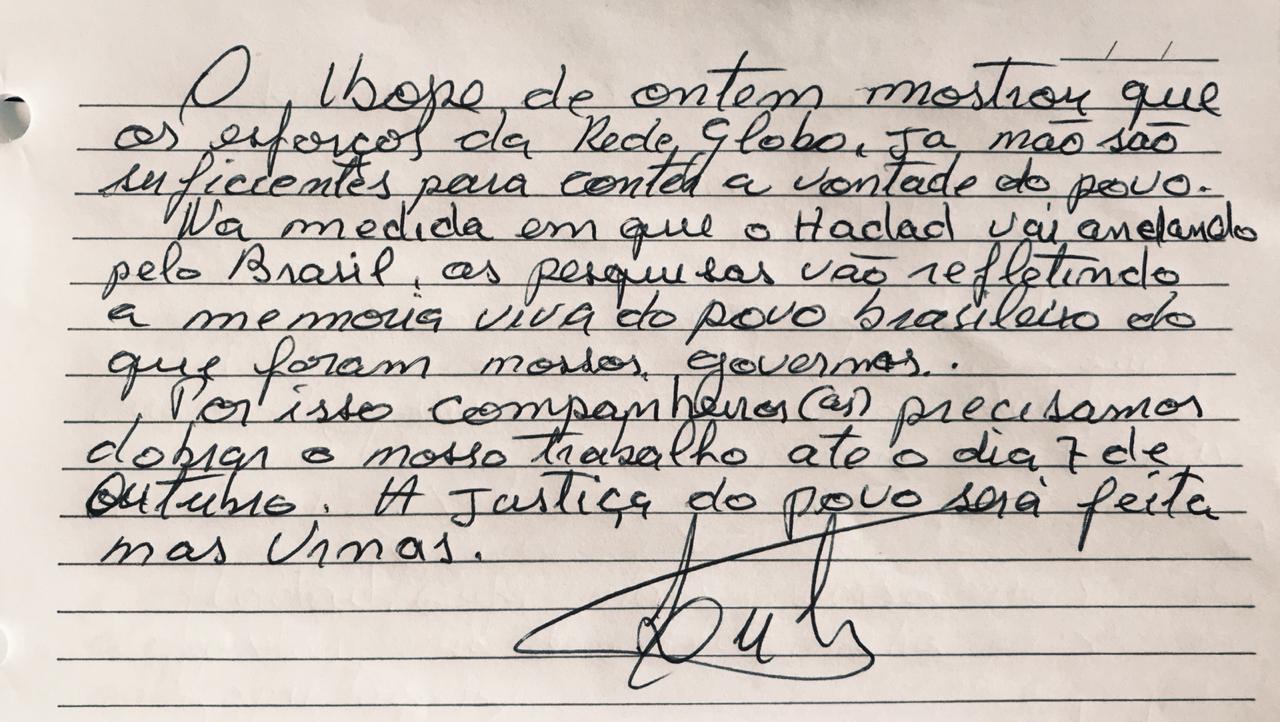 O Ibope de ontem mostrou que
os esforços da Rede Globo, ja não são
suficientes para conter a vontade do povo.
Na medida em que o Hadad vai andando
pelo Brasil, as pesquisas vão refletindo
a memoria viva do povo brasileiro do
que foram nossos governos.
Por isso companheiros(as) precisamos
dobrar o nosso trabalho ate o dia 7 de
Outubro. A Justiça do povo será feita
nas Urnas.
Lula